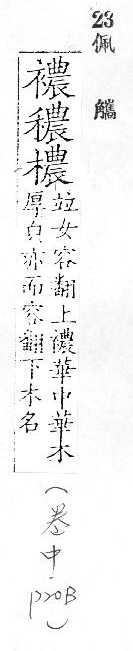 23佩觿
襛穠檂
竝女容翻上襛華中華木
厚皃亦而容翻下木名
(卷中 p20B)